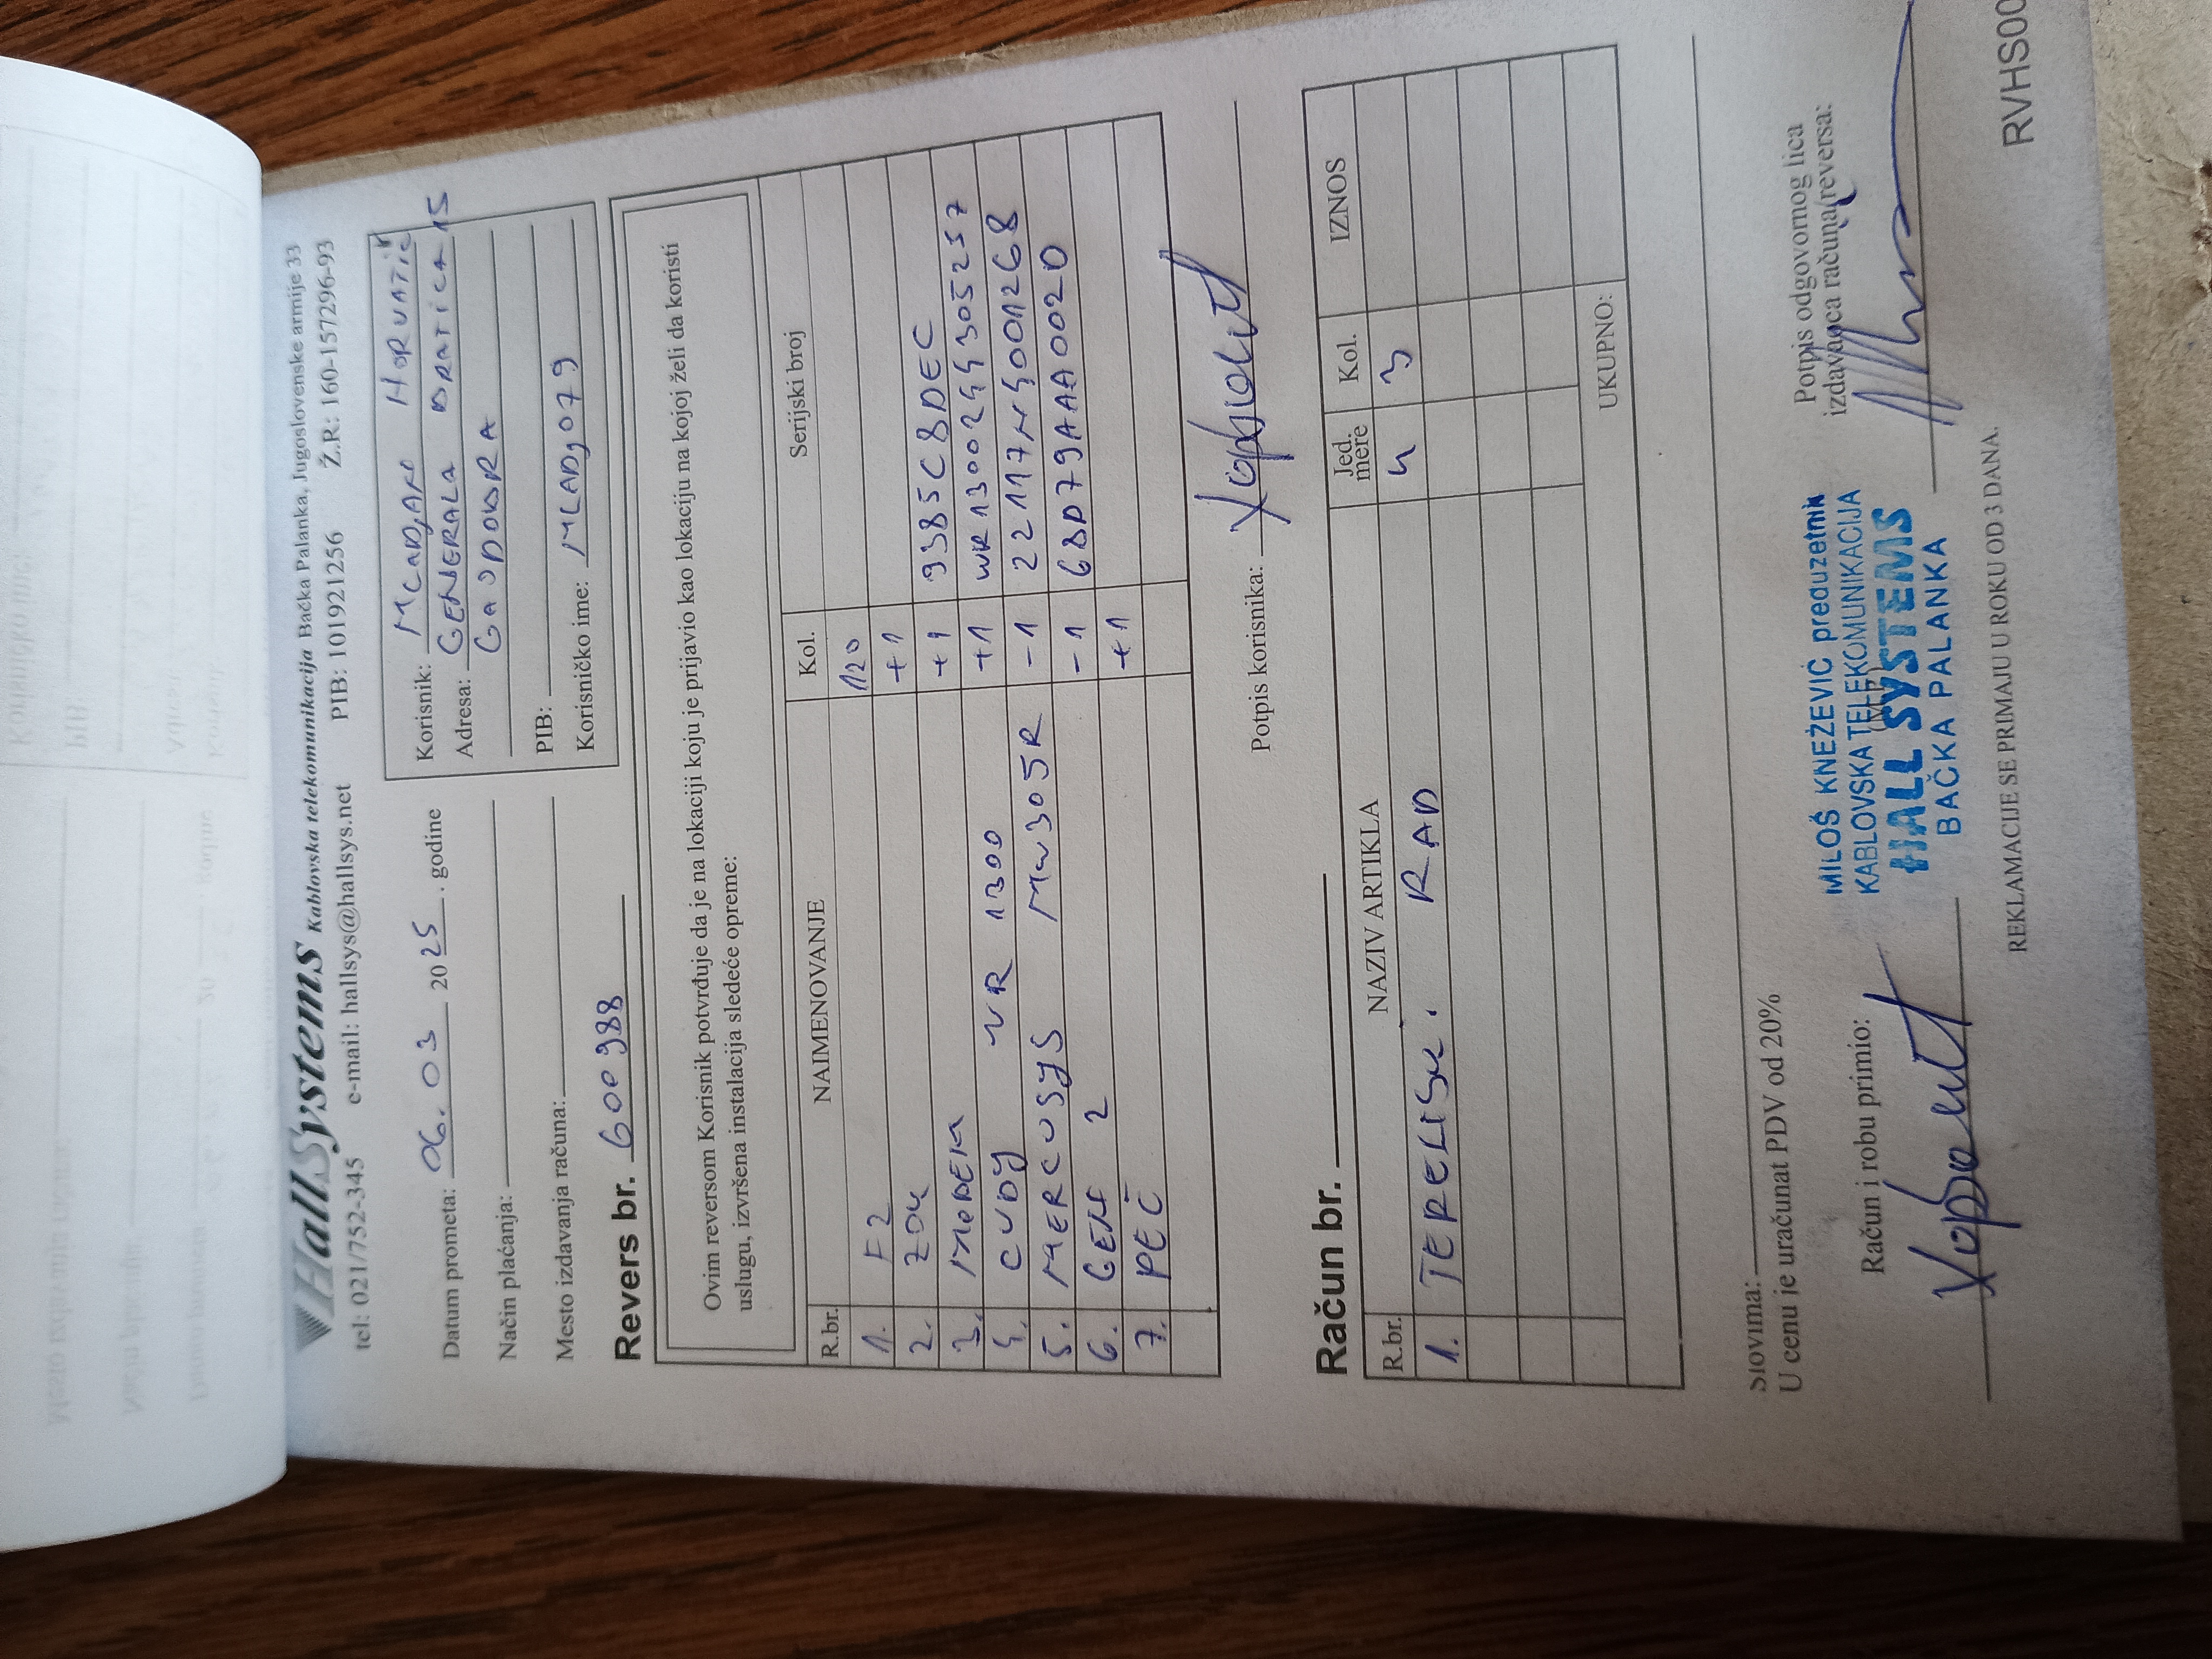 HallSystems Kablovska telekomunikacija Bačka Palanka, Jugoslovenske armije 33
tel: 021/7552-345 e-mail: hallsys@hallsys.net PIB: 101921256 Ž.R: 160-157296-93
Datum prometa: 06.03 2025. godine
Način plaćanja:
Mesto izdavanja računa:
Korisnik: MLADJAN HORVATIĆ
Adresa: GENERALA DRATICA 15
GAJDOBRA
PIB:
Korisničko ime: MLADJ079
Revers br. 600988
Ovim reversom Korisnik potvrđuje da je na lokaciji koju je prijavio kao lokaciju na kojoj želi da koristi
uslugu, izvršena instalacija sledeće opreme:
R.br. NAIMENOVANJE Kol. Serijski broj
1. F2 120
2. ZOK +1
3. MODEM +1 9385C8DEC
4. CUDY WR 1300 +1 WR13002443305237
5. MERCUSYS MW305R -1 22117N4001268
6. GEN 2 -1 6BD79AAA0020
7. PEČ +1
Potpis korisnika:
Račun br.
R.br. NAZIV ARTIKLA Jed. mere Kol. IZNOS
1. TERELISK. RAD h 3
UKUPNO:
Slovima:
U cenu je uračunat PDV od 20%
Račun i robu primio:
MILOŠ KNEŽEVIĆ preduzetnik
KABLOVSKA TELEKOMUNIKACIJA
HALL SYSTEMS
BAČKA PALANKA
Potpis odgovornog lica
izdavaoca računa/reversa:
REKLAMACIJE SE PRIMAJU U ROKU OD 3 DANA.
RVHS00